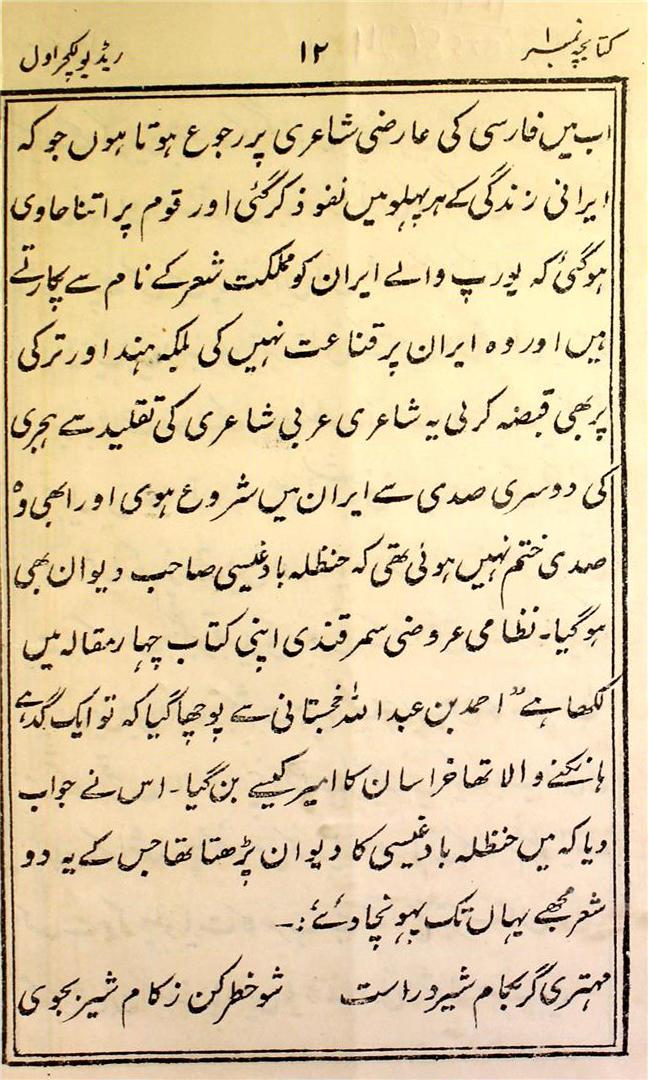 کتابچہ نمبر۱ ۱۲ ریڈیو لکچر اول
اب میں فارسی کی عارضی شاعری پر رجوع ہوتا ہوں جو کہ
ایرانی زندگی کے ہر پہلو میں نفوذ کرگئی اور قوم پر اتنا حاوی
ہوگئی کہ یورپ والے ایران کو مملکت شعر کے نام سے پکارتے
ہیں اور وہ ایران پر قناعت نہیں کی بلکہ ہند اور ترکی
پر بھی قبضہ کرلی یہ شاعری عربی شاعری کی تقلید سے ہجری
کی دوسری صدی سے ایران میں شروع ہوی اور ابھی وہ
صدی ختم نہیں ہوئی تھی کہ حنظلہ بادغیسی صاحب دیوان بھی
ہوگیا۔ نظامی عروضی سمرقندی اپنی کتاب چہار مقالہ میں
لکھا ہے ”احمد بن عبداللہ خجستانی سے پوچھا گیا کہ تو ایک گدھے
ہانکنے والا تھا خراسان کا امیر کیسے بن گیا۔ اس نے جواب
دیا کہ میں حنظلہ بادغیسی کا دیوان پڑھتا تھا جس کے یہ دو
شعر مجھے یہاں تک پہونچا دئے:۔
مہتری گر بکام شیر دراست شو خطر کن ز کام شیر بجوی